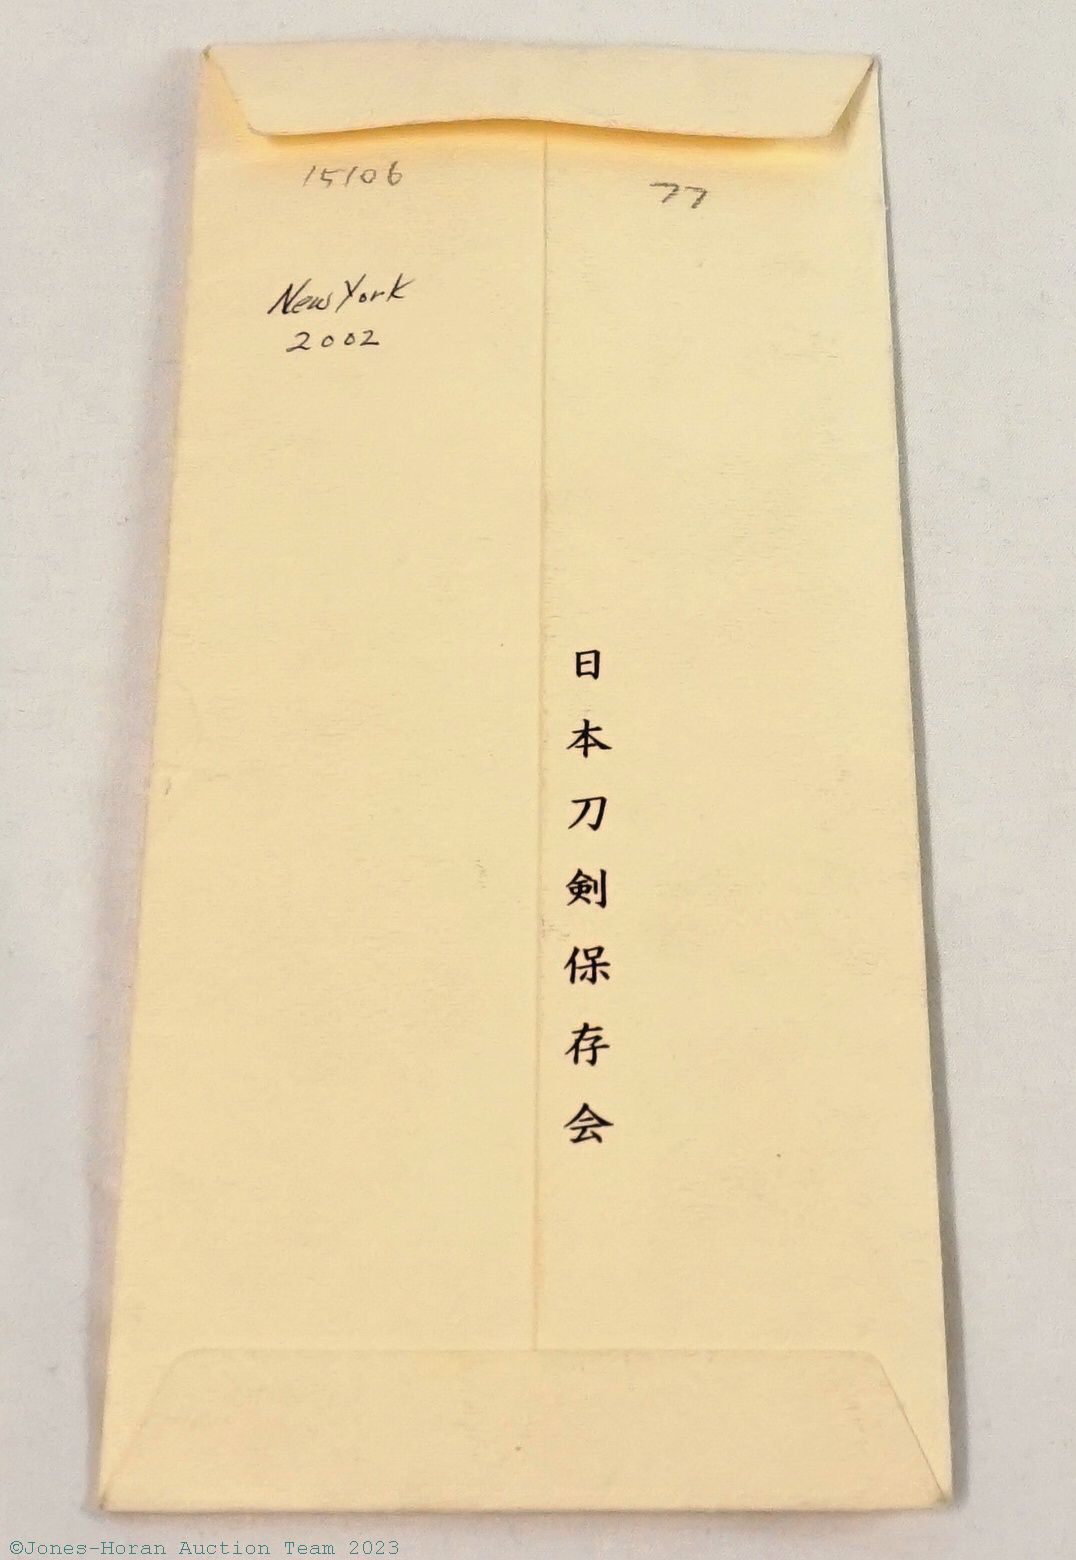 15106
77
New York
2002
日本刀剣保存会
©Jones-Horan Auction Team 2023